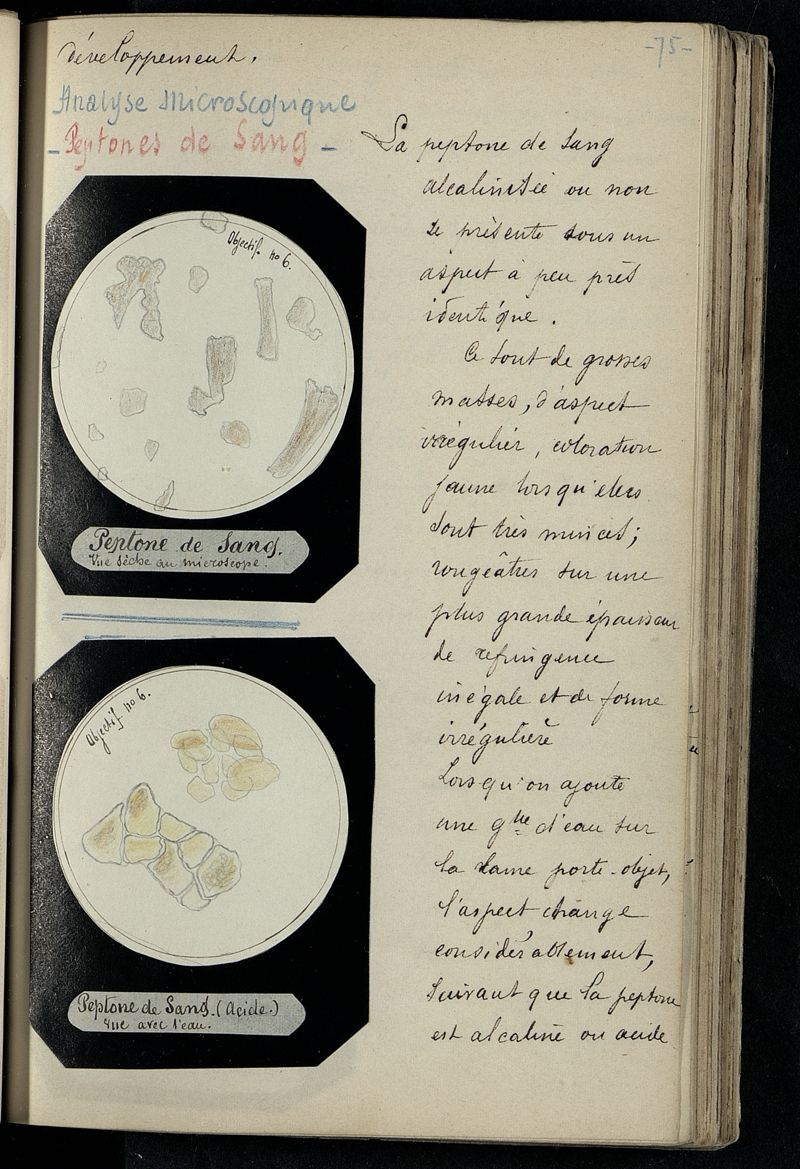 -75-
développement.
Analyse Microscopique
- Peptones de Sang -
Objectif. no 6.
Peptone de Sang.
Vue sèche au microscope.
Objectif no 6.
Peptone de Sang. (Acide.)
Vue avec l'eau.
La peptone de sang
alcalinisée ou non
se présente sous un
aspect à peu près
identique.
Ce sont de grosses
masses, d'aspect
irrégulier, coloration
jaune lorsqu'elles
sont très minces;
rougeâtres sur une
plus grande épaisseur
de réfringence
inégale et de forme
irrégulière
Lorsqu'on ajoute
une gtte d'eau sur
la lame porte-objet,
l'aspect change
considérablement,
suivant que la peptone
est alcaline ou acide